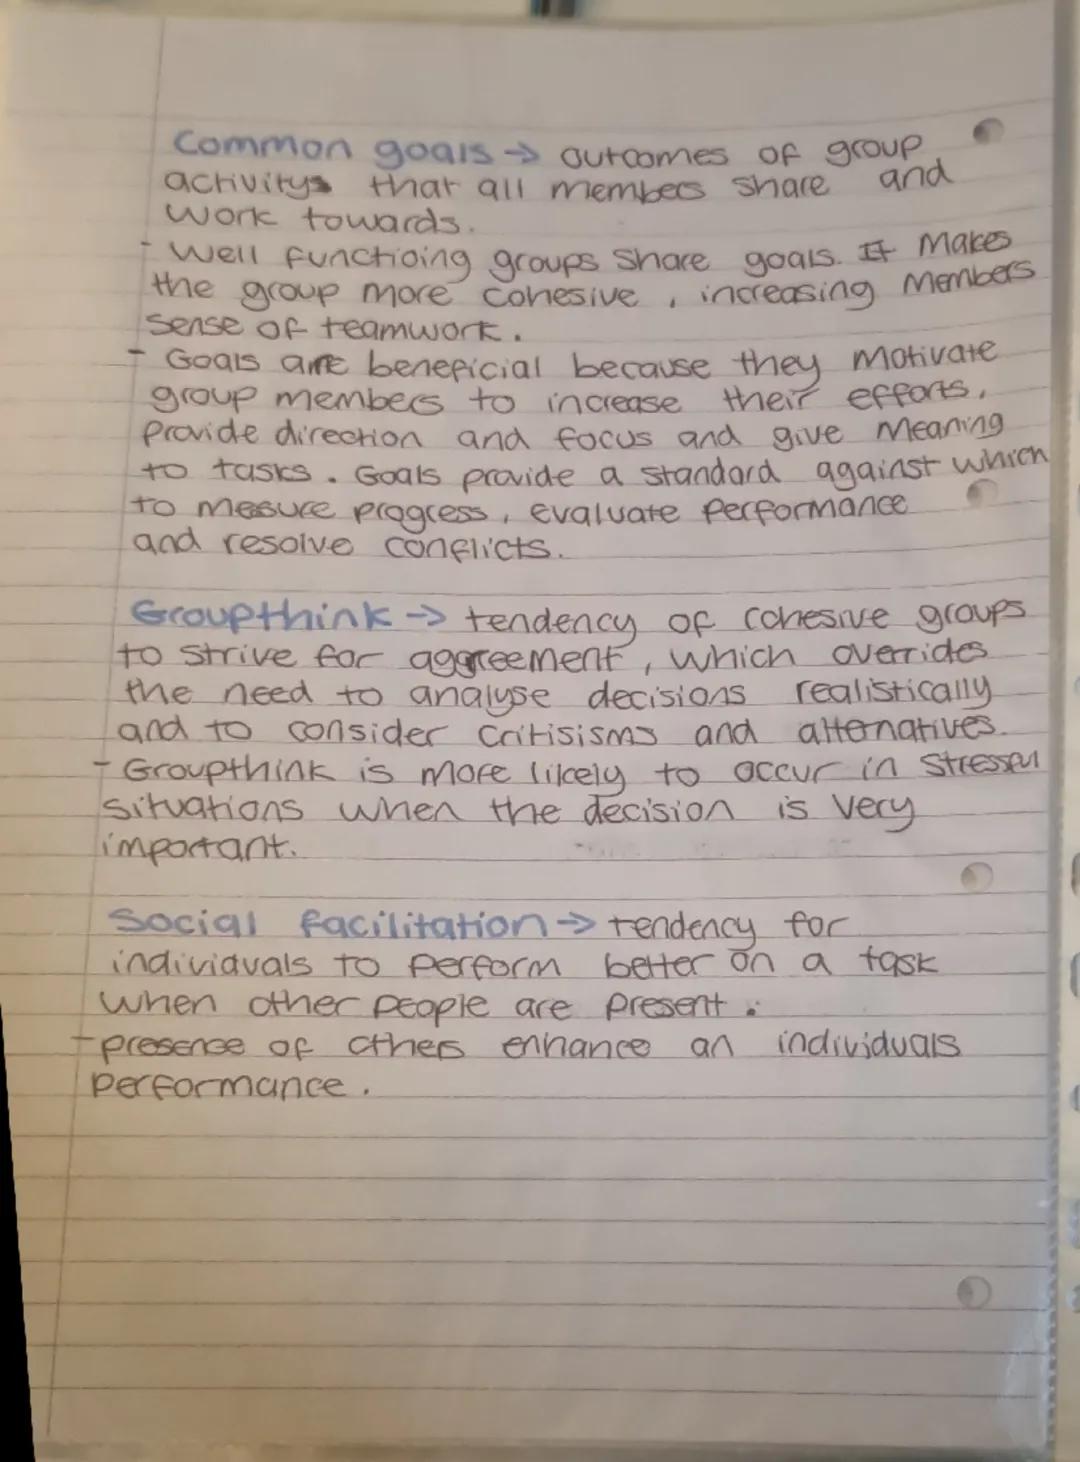 Common goals → outcomes of group
activitys that all members share and
work towards.
- Well functioing groups share goals. It makes
the group more cohesive, increasing members
sense of teamwork.
- Goals are beneficial because they motivate
group members to increase their efforts,
provide direction and focus and give meaning
to tasks. Goals provide a standard against which
to mesure progress, evaluate performance
and resolve conflicts.
Groupthink → tendency of cohesive groups
to strive for aggreement, which overrides
the need to analyse decisions realistically
and to consider critisisms and alternatives.
- Groupthink is more likely to occur in stressful
situations when the decision is very
important.
Social facilitation → tendency for
individuals to perform better on a task
when other people are present.
- presense of others enhance an individuals
performance.